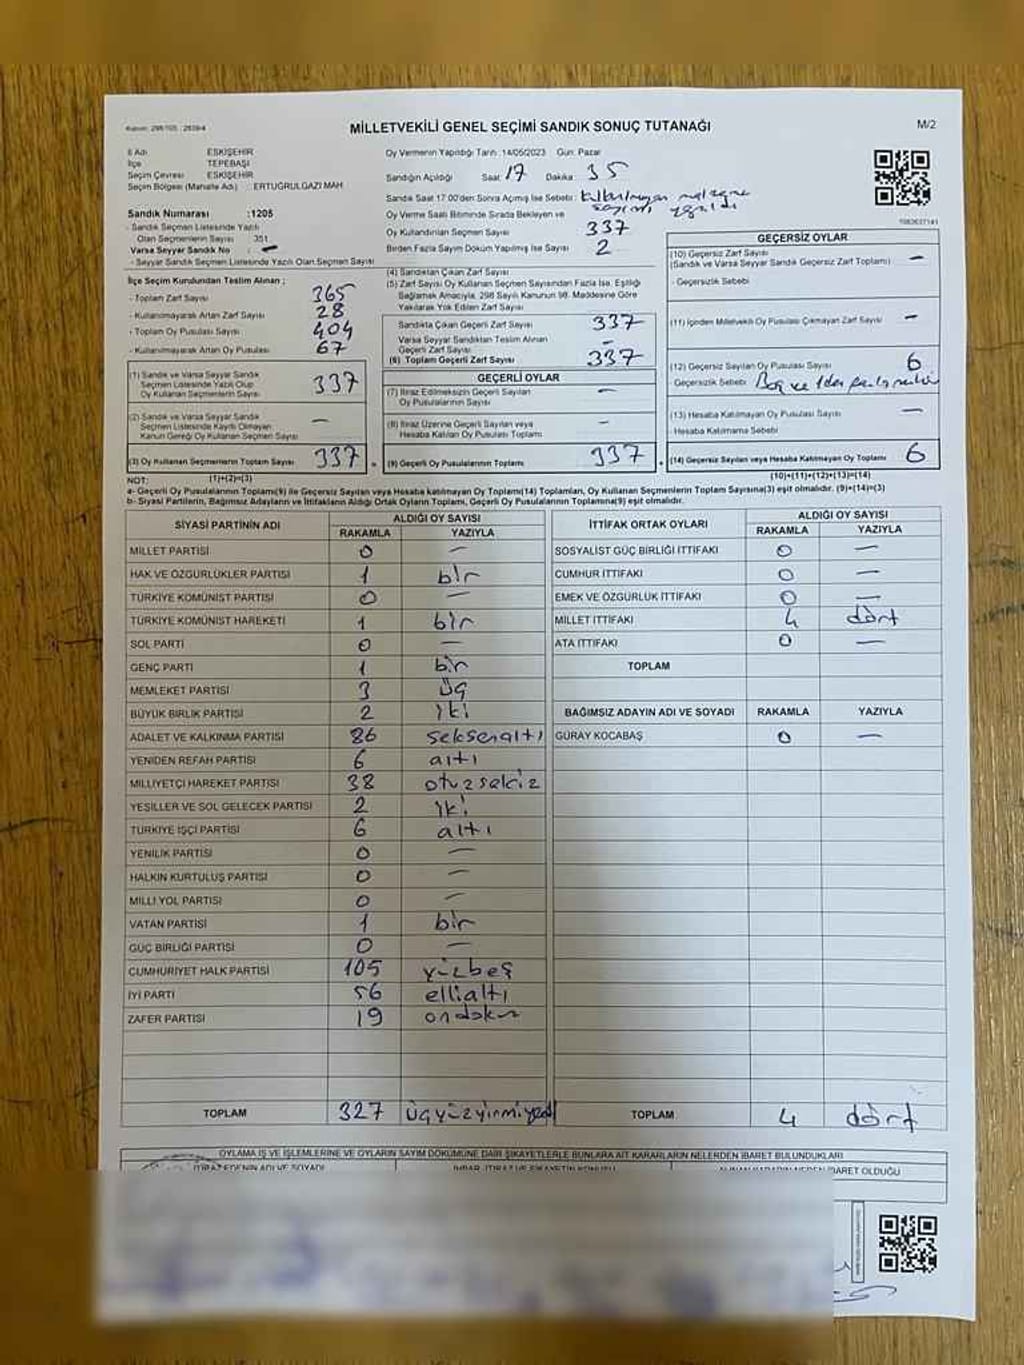 Kanun: 298/105 - 2839/4
MİLLETVEKİLİ GENEL SEÇİMİ SANDIK SONUÇ TUTANAĞI
M/2
İl Adı ESKİŞEHİR
İlçe TEPEBAŞI
Seçim Çevresi ESKİŞEHİR
Seçim Bölgesi (Mahalle Adı) : ERTUĞRULGAZİ MAH
Sandık Numarası :1205
- Sandık Seçmen Listesinde Yazılı
Olan Seçmenlerin Sayısı : 351
Varsa Seyyar Sandık No : -
- Seyyar Sandık Seçmen Listesinde Yazılı Olan Seçmen Sayısı
Oy Vermenin Yapıldığı Tarih :14/05/2023 Gün: Pazar
Sandığın Açıldığı Saat: 17 Dakika: 35
Sandık Saat 17:00'den Sonra Açılmış İse Sebebi : kullanılmayan malzeme
sayımı yapıldı
Oy Verme Saati Bitiminde Sırada Bekleyen ve
Oy Kullandırılan Seçmen Sayısı 337
Birden Fazla Sayım Döküm Yapılmış İse Sayısı 2
1083637141
İlçe Seçim Kurulundan Teslim Alınan ;
- Toplam Zarf Sayısı 365
- Kullanılmayarak Artan Zarf Sayısı 28
- Toplam Oy Pusulası Sayısı 404
- Kullanılmayarak Artan Oy Pusulası 67
(1) Sandık ve Varsa Seyyar Sandık
Seçmen Listesinde Yazılı Olup
Oy Kullanan Seçmenlerin Sayısı 337
(2) Sandık ve Varsa Seyyar Sandık
Seçmen Listesinde Kayıtlı Olmayan
Kanun Gereği Oy Kullanan Seçmen Sayısı -
(3) Oy Kullanan Seçmenlerin Toplam Sayısı 337
(1)+(2)=(3)
(4) Sandıktan Çıkan Zarf Sayısı
(5) Zarf Sayısı Oy Kullanan Seçmen Sayısından Fazla İse, Eşitliği
Sağlamak Amacıyla, 298 Sayılı Kanunun 98. Maddesine Göre
Yakılarak Yok Edilen Zarf Sayısı
Sandıkta Çıkan Geçerli Zarf Sayısı 337
Varsa Seyyar Sandıktan Teslim Alınan
Geçerli Zarf Sayısı -
(6) Toplam Geçerli Zarf Sayısı 337
GEÇERLİ OYLAR
(7) İtiraz Edilmeksizin Geçerli Sayılan
Oy Pusulalarının Sayısı -
(8) İtiraz Üzerine Geçerli Sayılan veya
Hesaba Katılan Oy Pusulası Toplamı -
(9) Geçerli Oy Pusulalarının Toplamı 337
GEÇERSİZ OYLAR
(10) Geçersiz Zarf Sayısı
(Sandık ve Varsa Seyyar Sandık Geçersiz Zarf Toplamı) -
- Geçersizlik Sebebi
(11) İçinden Milletvekili Oy Pusulası Çıkmayan Zarf Sayısı -
(12) Geçersiz Sayılan Oy Pusulası Sayısı 6
- Geçersizlik Sebebi Boş ve 1den fazla mühür
(13) Hesaba Katılmayan Oy Pusulası Sayısı -
- Hesaba Katılmama Sebebi
(14) Geçersiz Sayılan veya Hesaba Katılmayan Oy Toplamı 6
(10)+(11)+(12)+(13)=(14)
NOT:
a- Geçerli Oy Pusulalarının Toplamı(9) ile Geçersiz Sayılan veya Hesaba katılmayan Oy Toplamı(14) Toplamları, Oy Kullanan Seçmenlerin Toplam Sayısına(3) eşit olmalıdır. (9)+(14)=(3)
b- Siyasi Partilerin, Bağımsız Adayların ve İttifakların Aldığı Ortak Oyların Toplamı, Geçerli Oy Pusulalarının Toplamına(9) eşit olmalıdır.
SİYASİ PARTİNİN ADI ALDIĞI OY SAYISI
RAKAMLA YAZIYLA
MİLLET PARTİSİ 0 -
HAK VE ÖZGÜRLÜKLER PARTİSİ 1 bir
TÜRKİYE KOMÜNİST PARTİSİ 0 -
TÜRKİYE KOMÜNİST HAREKETİ 1 bir
SOL PARTİ 0 -
GENÇ PARTİ 1 bir
MEMLEKET PARTİSİ 3 üç
BÜYÜK BİRLİK PARTİSİ 2 iki
ADALET VE KALKINMA PARTİSİ 86 seksenaltı
YENİDEN REFAH PARTİSİ 6 altı
MİLLİYETÇİ HAREKET PARTİSİ 38 otuzsekiz
YEŞİLLER VE SOL GELECEK PARTİSİ 2 iki
TÜRKİYE İŞÇİ PARTİSİ 6 altı
YENİLİK PARTİSİ 0 -
HALKIN KURTULUŞ PARTİSİ 0 -
MİLLİ YOL PARTİSİ 0 -
VATAN PARTİSİ 1 bir
GÜÇ BİRLİĞİ PARTİSİ 0 -
CUMHURİYET HALK PARTİSİ 105 yüzbeş
İYİ PARTİ 56 ellialtı
ZAFER PARTİSİ 19 ondokuz
TOPLAM 327 üçyüzyirmiyedi
İTTİFAK ORTAK OYLARI ALDIĞI OY SAYISI
RAKAMLA YAZIYLA
SOSYALİST GÜÇ BİRLİĞİ İTTİFAKI 0 -
CUMHUR İTTİFAKI 0 -
EMEK VE ÖZGÜRLÜK İTTİFAKI 0 -
MİLLET İTTİFAKI 4 dört
ATA İTTİFAKI 0 -
TOPLAM
BAĞIMSIZ ADAYIN ADI VE SOYADI RAKAMLA YAZIYLA
GÜRAY KOCABAŞ 0 -
TOPLAM 4 dört
OYLAMA İŞ VE İŞLEMLERİNE VE OYLARIN SAYIM DÖKÜMÜNE DAİR ŞİKAYETLERLE BUNLARA AİT KARARLARIN NELERDEN İBARET BULUNDUKLARI
İTİRAZ EDENİN ADI VE SOYADI
İHBAR, İTİRAZ VE ŞİKAYETİN KONUSU
İBARET OLDUĞU